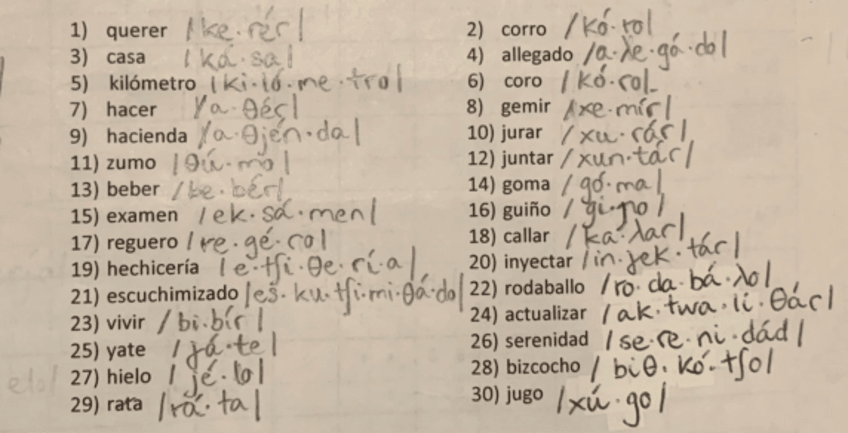 1) querer /ke·rér/
2) corro /kó·ro/
3) casa /ká·sa/
4) allegado /a·ʎe·gá·do/
5) kilómetro /ki·ló·me·tro/
6) coro /kó·ɾo/
7) hacer /a·θéɾ/
8) gemir /xe·míɾ/
9) hacienda /a·θjén·da/
10) jurar /xu·ɾáɾ/
11) zumo /θú·mo/
12) juntar /xun·táɾ/
13) beber /be·béɾ/
14) goma /gó·ma/
15) examen /ek·sá·men/
16) guiño /gi·ɲo/
17) reguero /re·gé·ɾo/
18) callar /ka·ʎaɾ/
19) hechicería /e·tʃi·θe·ɾí·a/
20) inyectar /in·ɟek·táɾ/
21) escuchimizado /es·ku·tʃi·mi·θá·do/
22) rodaballo /ro·da·bá·ʎo/
23) vivir /bi·bíɾ/
24) actualizar /ak·twa·li·θáɾ/
25) yate /ɟá·te/
26) serenidad /se·ɾe·ni·dád/
27) hielo /jé·lo/
28) bizcocho /biθ·kó·tʃo/
29) rata /rá·ta/
30) jugo /xú·go/